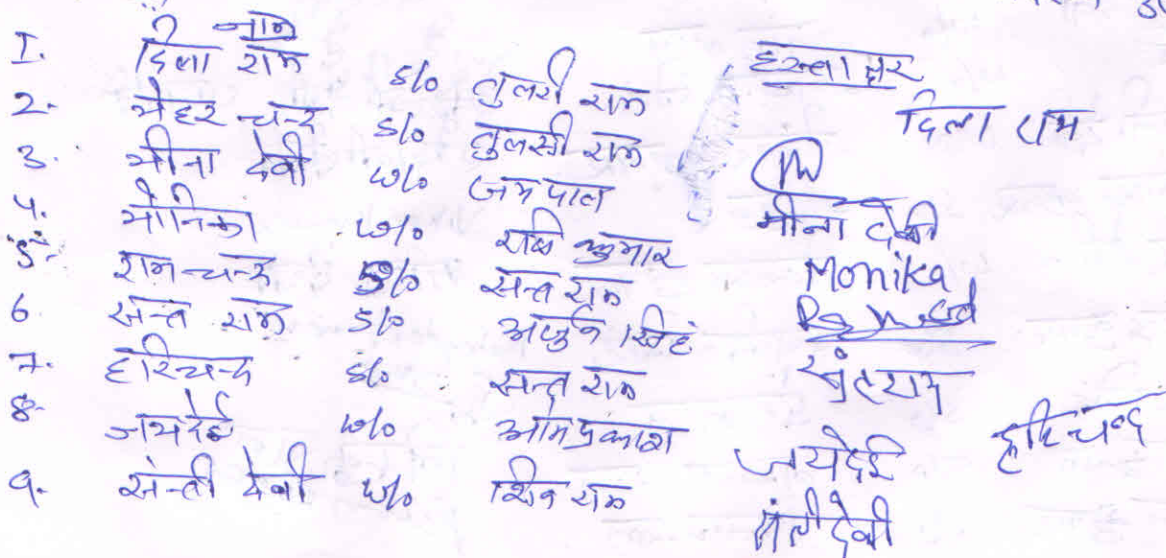 नाम हस्ताक्षर
1. दिला राम s/o तुलसी राम दिला राम
2. मेहर चन्द s/o तुलसी राम
3. मीना देवी w/o जयपाल मीना देवी
4. मोनिका w/o रवि कुमार Monika
5. राम चन्द s/o सन्त राम
6. सन्त राम s/o अर्जुन सिंह संतराम
7. हरिचन्द s/o सन्त राम हरिचन्द
8. जयदेई w/o ओमप्रकाश जयदेई
9. सन्ती देवी w/o शिव राम संती देवी